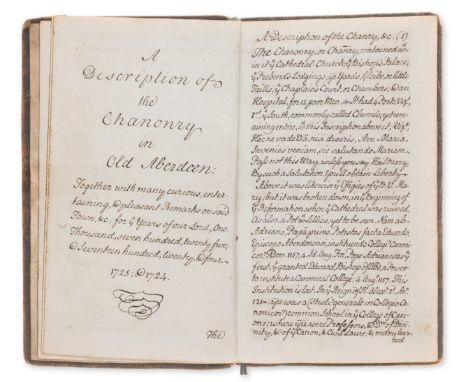 A
Description of
the
Chanonry
in
Old Aberdeen:
Together with many curious, enter-
taining, & pleasant Remarks on said
Town, &c, for yͤ Years of our Lord, One
Thousand, seven hundred, twenty five;
& Seventeen hundred, twenty, & four.
1725: & 1724.
The
A Description of the Chanry, &c. (1)
The Chanonry, or Chanry, contained w
in it yͤ Cathedral Church, yͤ Bishop's Palace;
yͤ Prebends Lodgings, Yards, Gleibs, or little
Faills, yͤ Chaplain's Court, or Chambers, & an
Hospital, for 12 poor Men. It had 4 Ports, Viz.
1st yͤ South, commonly called
maining entire, wt this Inscription above it, Viz.
Haec ne vade Via, nisi dixeris, Ave Maria,
Invenies veniam, sic salutando Mariam.
Pass not this Way, unless you say Hail Mary,
By such a Salutation, You'll obtain Liberty.
Above it was likewise yͤ Effigies of yͤ V. Ma-
ry, but it was broken down, in yͤ Beginning of
yͤ Reformation, when yͤ Cathedral was ruined.
As also, a Pot wt Lillies, yet to be seen. Nam ab
Adriano, Papa, primo, Potestas facta Eduardo,
Episcopo Aberdonensi, instituendi Collegii Canoni-
cor. Dom 1157, 4 Id. Aug. For, Pope Adrian was yͤ
first, yt granted Edward, Bishop of Abd, a Power
to institute a Canonical College, 4 Aug. 1157. This
Institution is lost. In yͤ Reign of
121- was a (Studium generale in Collegio Ca-
nonicor) common School in yͤ College of Can-
ons; where were Professors, & Drs of Divi-
nity, & of yͤ Canon, & Civil Laws; & many lear-
ned